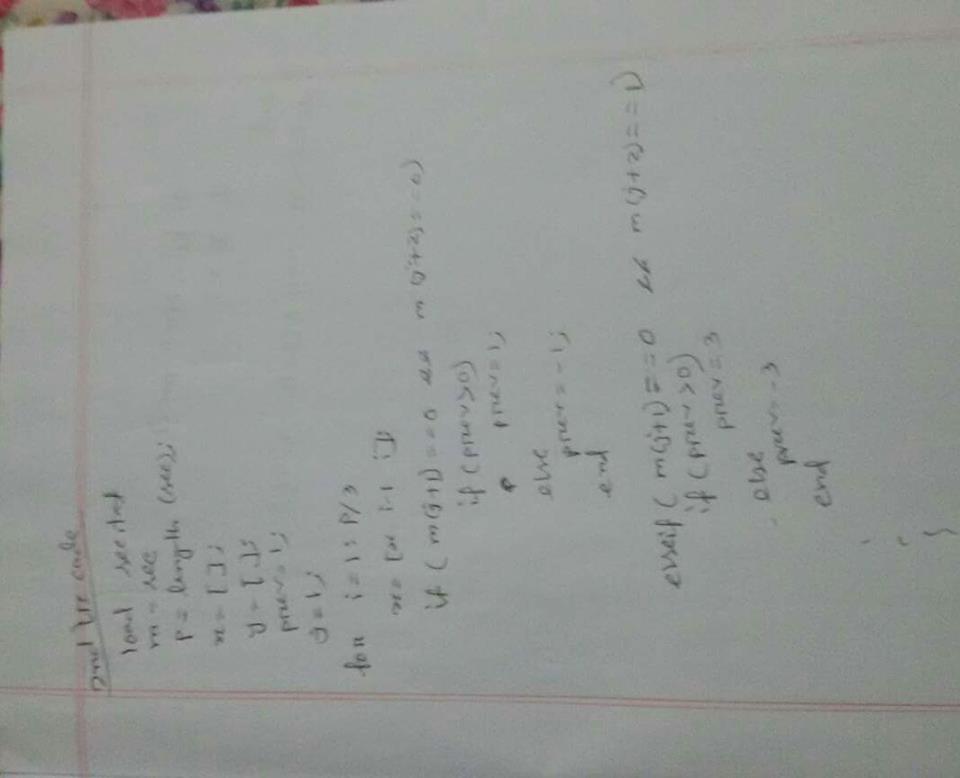 code
load
m = sec
P = length (sec);
x = [ ];
y = [ ];
prev = 1;
j = 1;
for i = 1 : P/3
x = [x i-1 i];
if ( m(j+1) == 0 && m(j+2) == 0)
if (prev>0)
prev = 1;
else
prev = -1;
end
elseif ( m(j+1) == 0 && m(j+2) == 1)
if (prev >0)
prev = 3
else
prev = -3
end